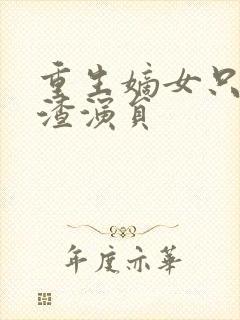 重生嫡女只
渣演员
年度亦華